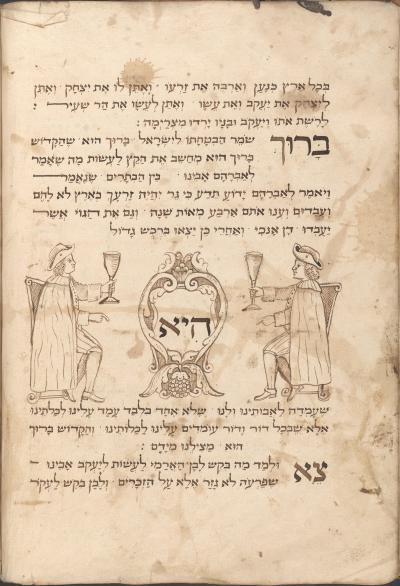 בכל ארץ כנען וארבה את זרעו ואתן לו את יצחק ואתן
ליצחק את יעקב ואת עשו ואתן לעשו את הר שעיר :
לרשת אתו ויעקב ובניו ירדו מצרימה :
ברוך שומר הבטחתו לישראל ברוך הוא שהקדוש
ברוך הוא מחשב את הקץ לעשות מה שאמר
לאברהם אבינו בין הבתרים שנאמר
ויאמר לאברהם ידוע תדע כי גר יהיה זרעך בארץ לא להם
ועבדום וענו אותם ארבע מאות שנה וגם את הגוי אשר
יעבדו דן אנכי ואחרי כן יצאו ברכש גדול
היא
שעמדה לאבותינו ולנו שלא אחד בלבד עמד עלינו לכלותינו
אלא שבכל דור ודור עומדים עלינו לכלותינו והקדוש ברוך
הוא מצילנו מידם :
צא ולמד מה בקש לבן הארמי לעשות ליעקב אבינו
שפרעה לא גזר אלא על הזכרים ולבן בקש לעקר